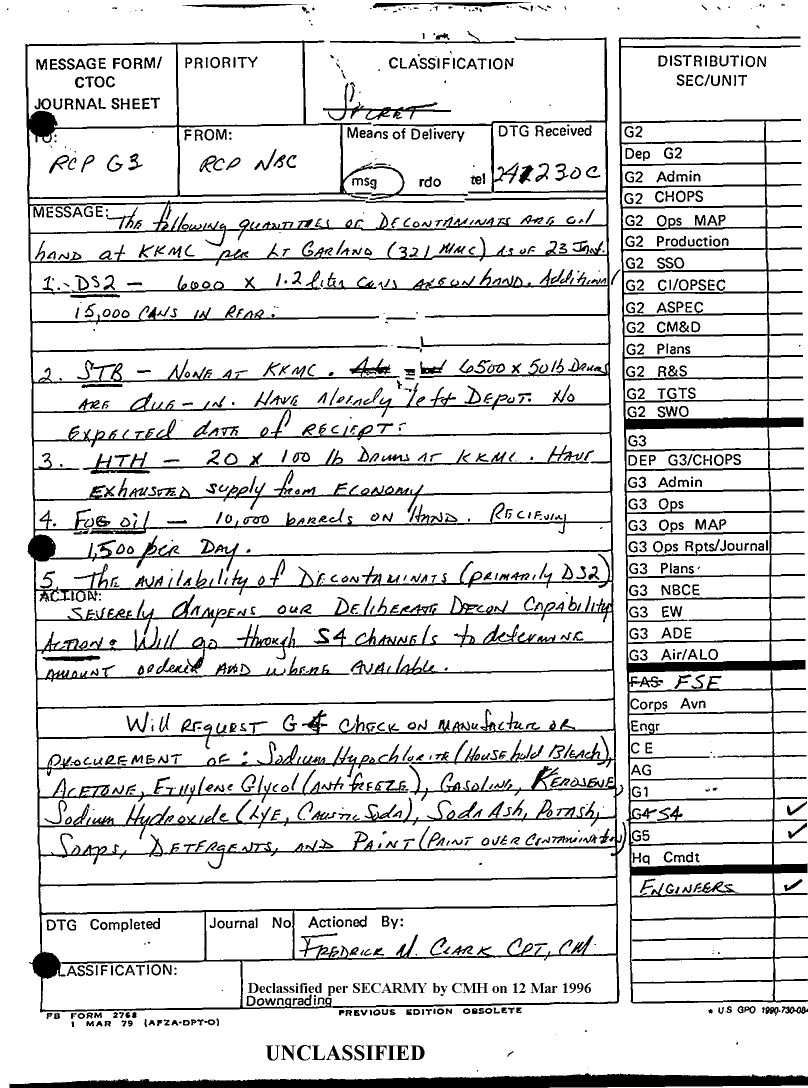 MESSAGE FORM/
CTOC
JOURNAL SHEET
PRIORITY
CLASSIFICATION
SECRET
TO:
RCP G3
FROM:
RCP NBC
Means of Delivery
msg rdo tel
DTG Received
241230C
MESSAGE: The following quantities of DECONTAMINATS ARE on
hand at KKMC per LT GARLAND (321 MMC) AS OF 23 JAN.
1. DS2 — 6000 x 1.2 liter cans are on hand. Additional
15,000 cans in rear.
2. STB — None at KKMC. 6500 x 50 lb Drums
are due-in. Have Already left Depot. No
expected date of reciept.
3. HTH — 20 x 100 lb Drums at KKMC. Have
Exhausted supply from Economy
4. Fog oil — 10,000 barrels on Hand. Recieving
1,500 per Day.
5. The availability of Decontaminats (primarily DS2)
ACTION:
severely dampens our Deliberate Decon Capability
Action: Will go through S4 channels to determine
amount ordered and where available.
Will request G4 check on manufacture or
procurement of: Sodium Hypochlorite (Household Bleach),
Acetone, Ethylene Glycol (Antifreeze), Gasoline, Kerosene,
Sodium Hydroxide (Lye, Caustic Soda), Soda Ash, Potash,
Soaps, Detergents, and Paint (Paint over Contamination)
DTG Completed
Journal No
Actioned By:
Fredrick M. Clark CPT, CM
CLASSIFICATION:
Declassified per SECARMY by CMH on 12 Mar 1996
Downgrading
FB FORM 2768
1 MAR 79 (AFZA-DPT-O)
PREVIOUS EDITION OBSOLETE
UNCLASSIFIED
DISTRIBUTION
SEC/UNIT
G2
Dep G2
G2 Admin
G2 CHOPS
G2 Ops MAP
G2 Production
G2 SSO
G2 CI/OPSEC
G2 ASPEC
G2 CM&D
G2 Plans
G2 R&S
G2 TGTS
G2 SWO
G3
DEP G3/CHOPS
G3 Admin
G3 Ops
G3 Ops MAP
G3 Ops Rpts/Journal
G3 Plans
G3 NBCE
G3 EW
G3 ADE
G3 Air/ALO
FAS FSE
Corps Avn
Engr
C E
AG
G1
G4 S4 ✓
G5 ✓
Hq Cmdt
Engineers ✓
* U.S GPO 1990-730-084